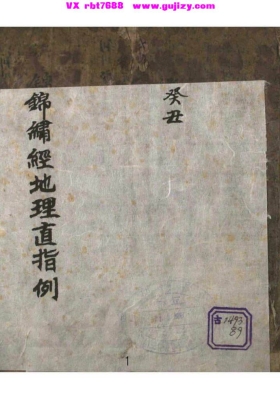 VX rbt7688 www.gujizy.com
癸丑
錦繡經地理直指例
古1493
89
1